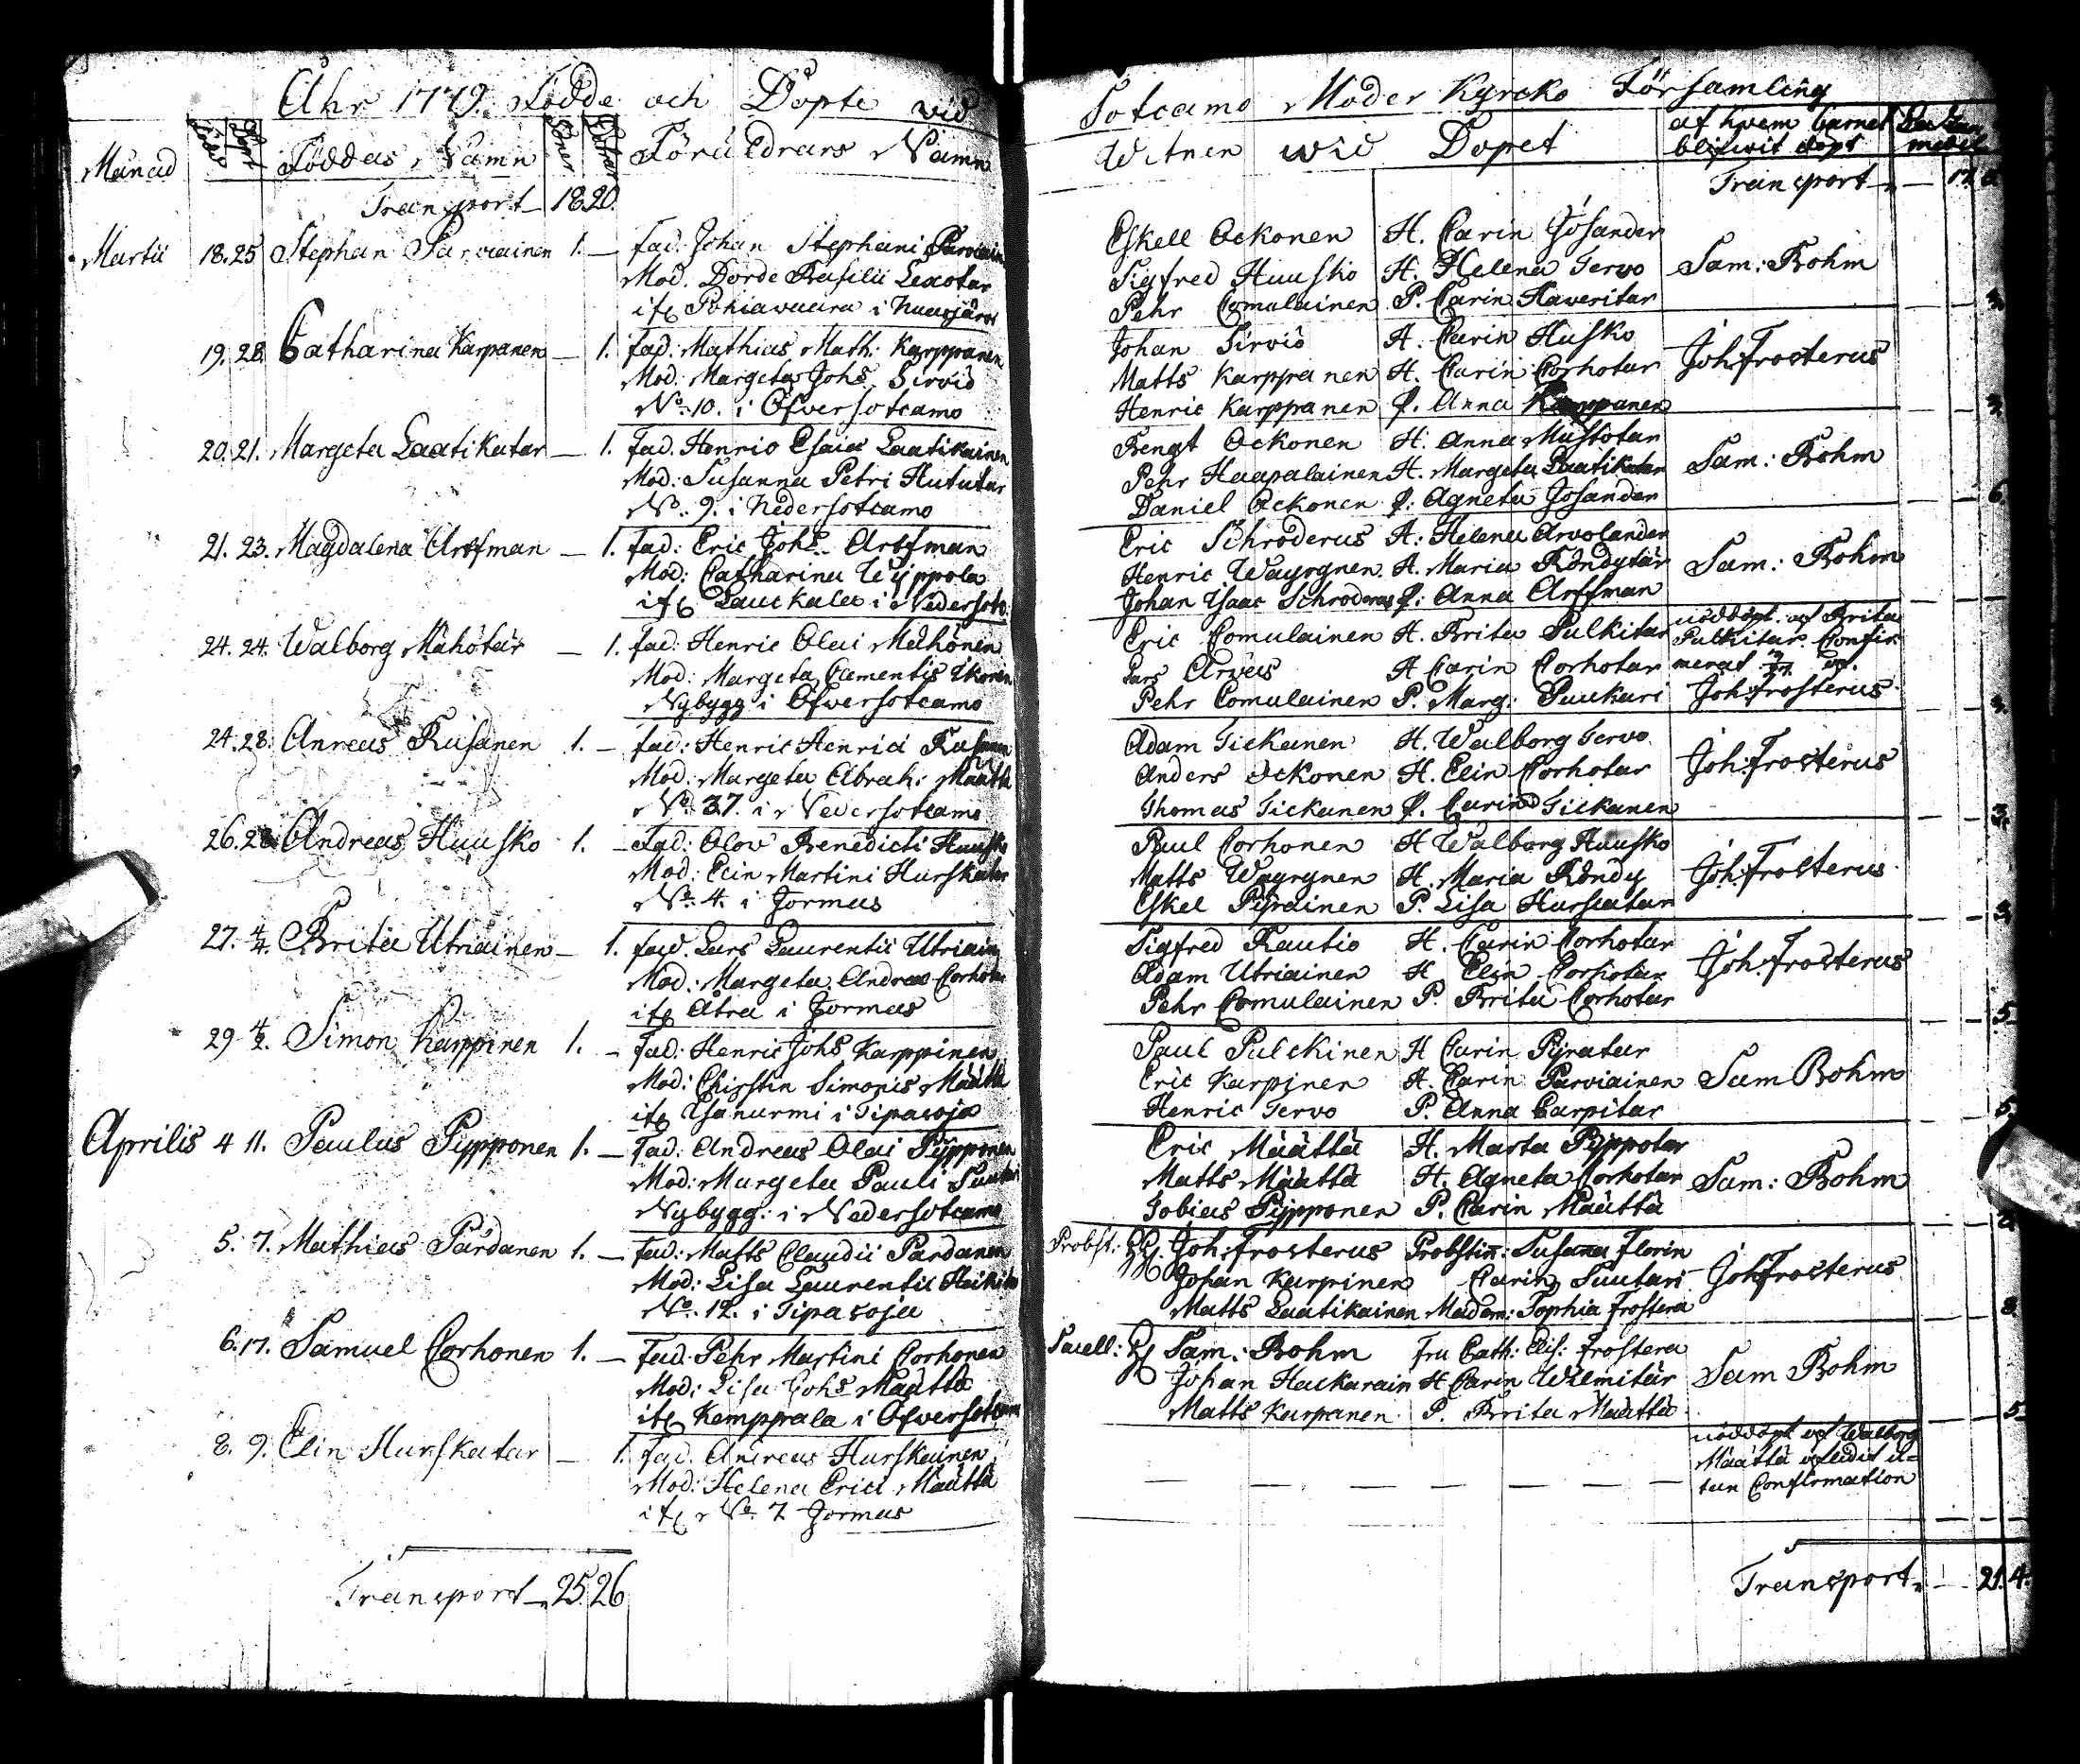 Åhr 1779. Födde och Döpte vid
Månad Födde Döpt Föddas Namn Söner Döttrar Föräldrars Namn
Transport 18 20.
Martii 18. 25 Stephan Parviainen 1. — Fad: Johan Stephani Parviain
Mod. Dorde Basilii Lexotar
itg Pohiavaara i Nuasjärvi
19. 28. Catharina Karpanen — 1. Fad: Mathias Math: Karppanen
Mod: Margeta Johs. Sirviö
No. 10. i Öfversotcamo
20. 21. Margeta Laatikatar — 1. Fad. Henric Esaiæ Laatikainen
Mod: Susanna Petri Hututar
No. 9. i Nedersotcamo
21. 23. Magdalena Arffman — 1. Fad: Eric Johs. Arffman
Mod: Catharina Wyppola
itg Lauckala i Nedersotc.
24. 24. Walborg Mähötär — 1. Fad: Henric Olai Mälhönen
Mod: Margeta Clementis Ikonen
Nybygg i Öfversotcamo
24. 28. Anreas Räisänen 1. — Fad: Henric Henrici
Mod: Margeta Abrah: Määttä
No. 37. i Nedersotcamo
26. 28 Andreas Huusko 1. — Fad: Olov Benedicti Huusko
Mod: Elin Martini Hurskatar
No. 4. i Jormus
27. 4/4. Brita Utriainen — 1. Fad. Lars Laurentii Utriain
Mod: Margeta Andreæ Corhotar
itg Ätra i Jormus
29 4/2. Simon Karppinen 1. — Fad: Henric Johs Karppinen
Mod: Chirstin Simonis Määttä
itg Isänurmi i Tipasoja
Aprilis 4 11. Paulus Pypponen 1. — Fad: Andreas Olai Pypponen
Mod: Margeta Pauli Suutari
Nybygg: i Nedersotcamo
5. 7. Mathias Pärdänen 1. — Fad: Matts Claudii Pardanen
Mod: Lisa Laurentii
No. 12. i Tipasoja
6. 17. Samuel Corhonen 1. — Fad: Pehr Martini Corhonen
Mod: Lisa Johs Määttä
itg Kemppala i Öfversotcam
8. 9. Elin Hurskatar — 1. Fad. Andreas Hurskainen
Mod: Helena Erici Määttä
itg No. 7 Jormus
Transport 25 26
Sotcamo Moder Kyrcko Församling
Witnen wid Dopet af hvem barnet blifwit döpt
Transport — 17.
Eskell Ockonen H. Carin Josander
Sigfred Huusko H. Helena Tervo Sam: Bohm
Pehr Comulainen P. Carin Haveritar
Johan Sirviö H. Carin Husko
Matts Karppanen H. Carin Corhotar Joh: Frosterus
Henric Karppanen P. Anna Karppanen
Bengt Ockonen H: Anna Mustotar
Pehr Haapalainen H. Margeta Laatikatar Sam: Bohm
Daniel Ockonen P: Agneta Josander 6.
Eric Schroderus H: Helena Arvolander
Henric Wayrynen. H. Maria Röndytär Sam: Bohm
Johan Isaac Schroderus P: Anna Arffman
Eric Comulainen H. Brita Pulkitar nöddöpt af Brita
Pulkitar. Confir
Lars Arvas H Carin Corhotar merat af.
Pehr Comulainen P. Marg: Puukari Joh: Frosterus
Adam Tickanen H. Walborg Tervo
Anders Ockonen H. Elin Corhotar Joh: Frosterus
Thomas Tickanen P. Carin Tickanen 3.
Paul Corhonen H Walborg Huusko
Matts Wayrynen H. Maria Röndy Joh: Frosterus
Eskel Pyräinen P. Lisa Hurscatar 3.
Sigfred Rautio H. Carin Corhotar
Adam Utriainen H Elin Corhotar Joh: Frosterus
Pehr Comulainen P. Brita Corhotar 5.
Paul Pulckinen H Carin Pyratar
Eric Karpinen H. Carin Parviainen Sam Bohm
Henric Tervo P. Anna Carpitar 5.
Eric Määttä H. Marta Pyppotar
Matts Määttä H. Agneta Corhotar Sam: Bohm
Tobias Pypponen P. Carin Määttä
Probst: Joh: Frosterus Probstin: Susanna Florin
Johan Karpinen Carin Suutari Joh: Frosterus
Matts Laatikainen Madem: Sophia Frostera 8.
Sacell: Sam: Bohm Fru Cath: Elis: Frostera
Johan Hackarain H Carin Wilmitär Sam Bohm
Matts Karpanen P. Brita Määttä 5.
nöddöpt af Walborg
Määttä afledit u=
tan Confirmation
Transport. — 21. 4.